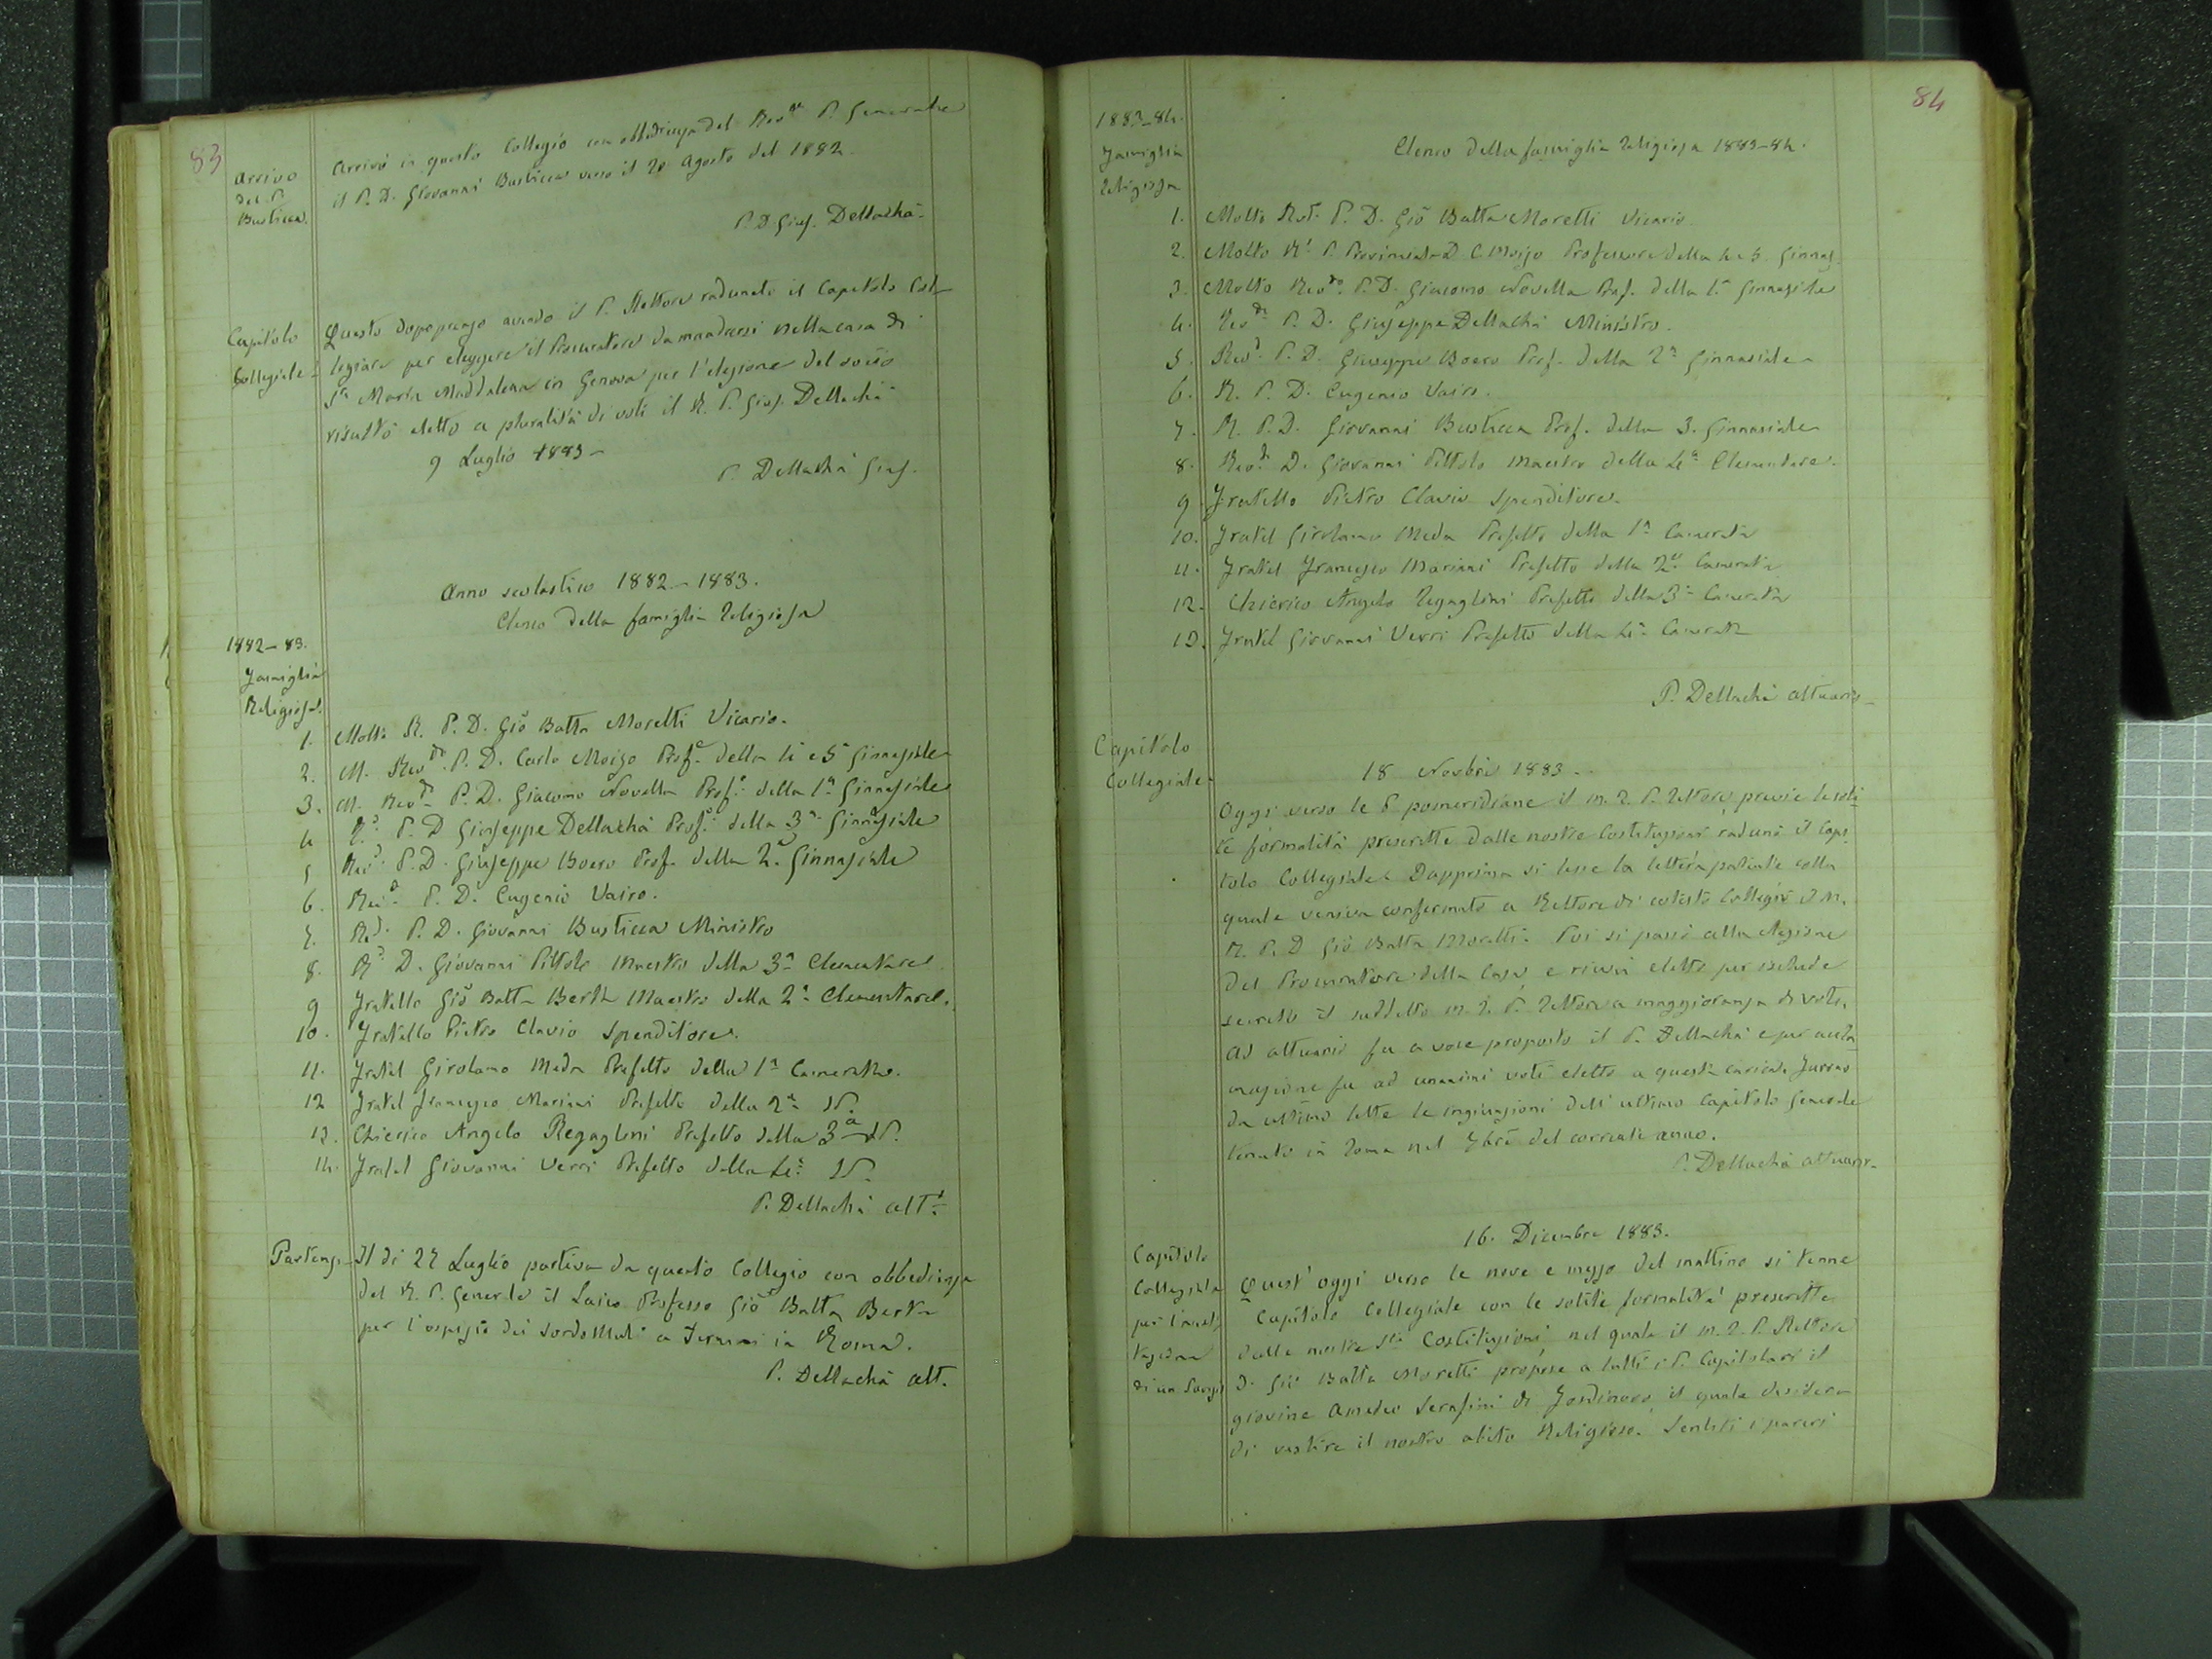 83
Arrivo
del P.
Busticca.
Arrivò in questo Collegio con obbedienza del Rev.mo P. Generale
il P. D. Giovanni Busticca verso il 20 Agosto del 1882.
P. D. Gius. Dellachà
Capitolo
Collegiale
Questo dopopranzo avendo il P. Rettore radunato il Capitolo Col-
legiale per eleggere il Procuratore da mandarsi nella casa di
S.ta Maria Maddalena in Genova per l'elezione del socio
risultò eletto a pluralità di voti il R. P. Gius. Dellachà
9 Luglio 1883
P. Dellachà Gius.
Anno scolastico 1882-1883.
Elenco della famiglia religiosa
1882-83.
Famiglia
Religiosa.
1. Molto R. P. D. Giò Batta Moretti Vicario.
2. M. Revdo. P. D. Carlo Moizo Profe della 4 e 5a Ginnasiale
3. M. Revdo P. D. Giacomo Novella Profe. della 1a Ginnasiale
4 Rdo. P. D Giuseppe Dellachà Profe. della 3a Ginnasiale
5 Revd. P. D. Giuseppe Boero Prof. della 2a. Ginnasiale
6. Revd. P. D. Eugenio Vairo.
7. Rd. P. D. Giovanni Busticca Ministro
8. Rd D. Giovanni Pittolo Maestro della 3a Elementare
9 Fratello Giò Batta Berta Maestro della 2a Elementare.
10. Fratello Pietro Clavio Spenditore.
11. Fratel Girolamo Meda Prefetto della 1a Camerata.
12 Fratel Francesco Mariani Prefetto della 2a Id.
13. Chierico Angelo Regaglini Prefetto della 3a Id.
14. Fratel Giovanni Verri Prefetto della 4a Id.
P. Dellachà att.o
Partenza
Il dì 27 Luglio partiva da questo Collegio con obbedienza
del R. P. Generale il Laico Professo Giò Batta Berta
per l'ospizio dei Sordo Muti a Termini in Roma.
P. Dellachà att.
84
1883-84.
Famiglia
religiosa
Elenco della famiglia religiosa 1883-84.
1. Molto Rdo. P. D. Giò Batta Moretti Vicario
2. Molto Rd. P. Provinciale D. C. Moizo Professore della 4 e 5 Ginnas.
3. Molto Revdo. P. D. Giacomo Novella Prof. della 1a Ginnasiale
4. Revdo P. D. Giuseppe Dellachà Ministro.
5. Revd. P. D. Giuseppe Boero Prof. della 2a Ginnasiale
6. R. P. D. Eugenio Vairo.
7. R. P. D. Giovanni Busticca Prof. della 3. Ginnasiale
8. Revd. D. Giovanni Pittolo Maestro della 4a Elementare.
9 Fratello Pietro Clavio Spenditore.
10. Fratel Girolamo Meda Prefetto della 1a Camerata
11. Fratel Francesco Mariani Prefetto della 2a Camerata
12. Chierico Angelo Regaglini Prefetto della 3a Camerata
13. Fratel Giovanni Verri Prefetto della 4a Camerata
P. Dellachà attuario
Capitolo
Collegiale
18 Novbre 1883.
Oggi verso le 5 pomeridiane il m. R. P. Rettore, previe le soli-
te formalità prescritte dalle nostre Costituzioni radunò il Capi-
tolo Collegiale. Dapprima si lesse la lettera patente colla
quale veniva confermato a Rettore di cotesto Collegio il M.
R. P. D Giò Batta Moretti. Poi si passò alla elezione
del Procuratore della Casa, e riuscì eletto per ischede
secrete il suddetto m. R. P. Rettore a maggioranza di voti.
Ad attuario fu a voce proposto il P. Dellachà e per accla-
mazione fu ad unanimi voti eletto a questa carica. Furono
da ultimo lette le ingiunzioni dell' ultimo Capitolo Generale
tenuto in Roma nel 7bre del corrente anno.
P. Dellachà attuario
Capitolo
Collegiale
per l'accet-
tazione
di un
16. Dicembre 1883.
Quest' oggi verso le nove e mezzo del mattino si tenne
Capitolo Collegiale con le solite formalità prescritte
dalle nostre Ste Costituzioni, nel quale il m. R. P. Rettore
D. Giò Batta Moretti propose a tutti i P. Capitolari il
giovine Amedeo Serafini di Jordinovo il quale desidera
di vestire il nostro abito Religioso. Sentiti i pareri